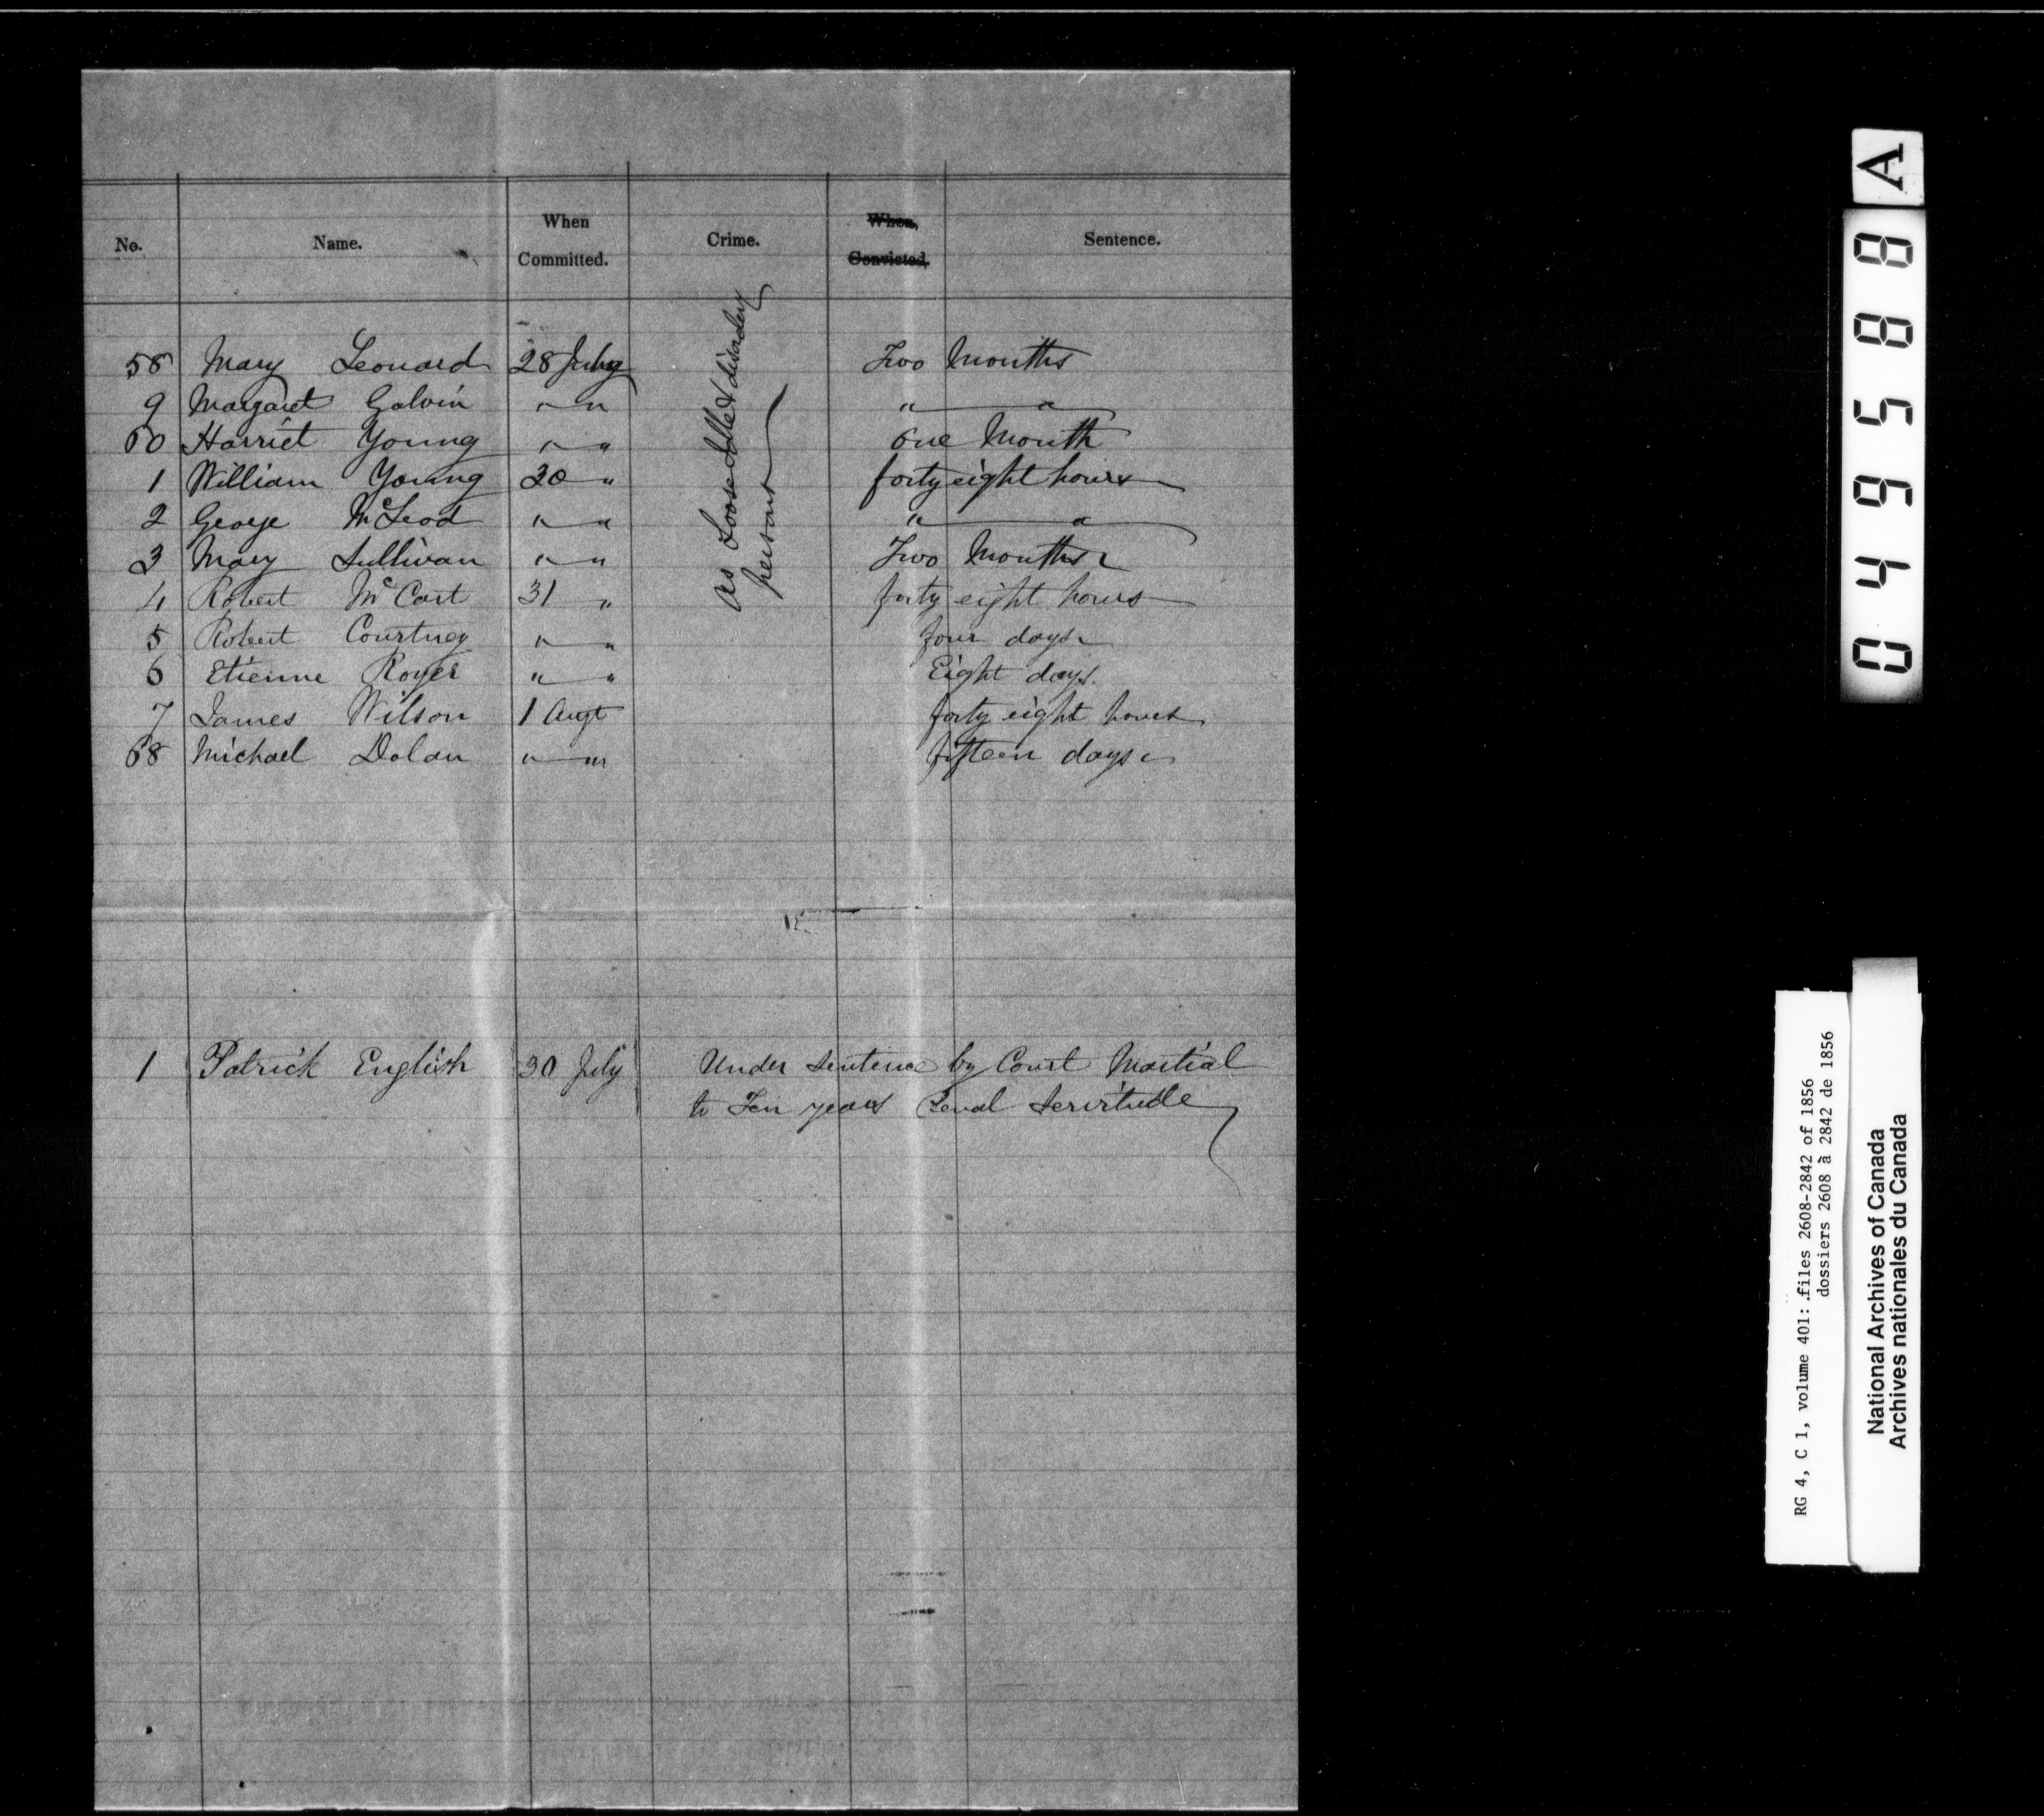 No. Name. When Committed. Crime. When Convicted. Sentence.
58 Mary Leonard 28 July Two Months
9 Margaret Galvin " " " "
60 Harriet Young " " One Month
1 William Young 30 " forty eight hours
2 George McLeod " " " "
3 Mary Sullivan " " Two Months
4 Robert McCart 31 " forty eight hours
5 Robert Courtney " " four days
6 Etienne Royer " " Eight days.
7 James Wilson 1 Augt forty eight hours
68 Michael Dolan " " fifteen days
As Loose Idle & disorderly
persons
1 Patrick English 30 July Under sentence by Court Martial
to Ten years Penal Servitude
049588 A
RG 4, C 1, volume 401: files 2608-2842 of 1856
dossiers 2608 à 2842 de 1856
National Archives of Canada
Archives nationales du Canada